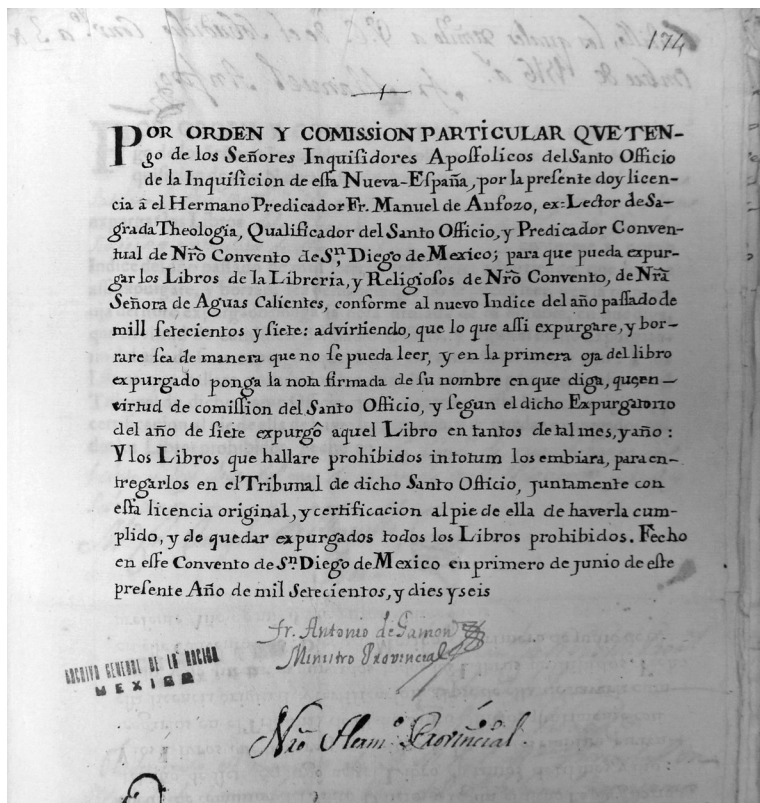 174
POR ORDEN Y COMISSION PARTICULAR QVE TEN-
go de los Señores Inquiſidores Apoſtolicos del Santo Officio
de la Inquiſicion de eſta Nueva-Eſpaña, por la preſente doy licen-
cia â el Hermano Predicador Fr. Manuel de Anſozo, ex=Lector de Sa-
grada Theologia, Qualificador del Santo Officio, y Predicador Conven-
tual de Nrõ Convento de Sn. Diego de Mexico; para que pueda expur-
gar los Libros de la Libreria, y Religioſos de Nrõ Convento, de Nrã
Señora de Aguas Calientes, conforme al nuevo Indice del año paſſado de
mill ſetecientos y ſiete: advirtiendo, que lo que aſſi expurgare, y bor-
rare ſea de manera que no ſe pueda leer, y en la primera oja del libro
expurgado ponga la nota firmada de ſu nombre en que diga, que en
virtud de comiſſion del Santo Officio, y ſegun el dicho Expurgatorio
del año de ſiete expurgô aquel Libro en tantos de tal mes, y año:
Y los Libros que hallare prohibidos in totum los embiara, para en-
tregarlos en el Tribunal de dicho Santo Officio, juntamente con
eſta licencia original, y certificacion al pie de ella de haverla cum-
plido, y de quedar expurgados todos los Libros prohibidos. Fecho
en eſte Convento de Sn. Diego de Mexico en primero de junio de eſte
preſente Año de mil Setecientos, y dies y seis
Fr. Antonio de Gamon
Miniſtro Provincial
ARCHIVO GENERAL DE LA NACION
MEXICO
Nrõ Herm.o Provincial.